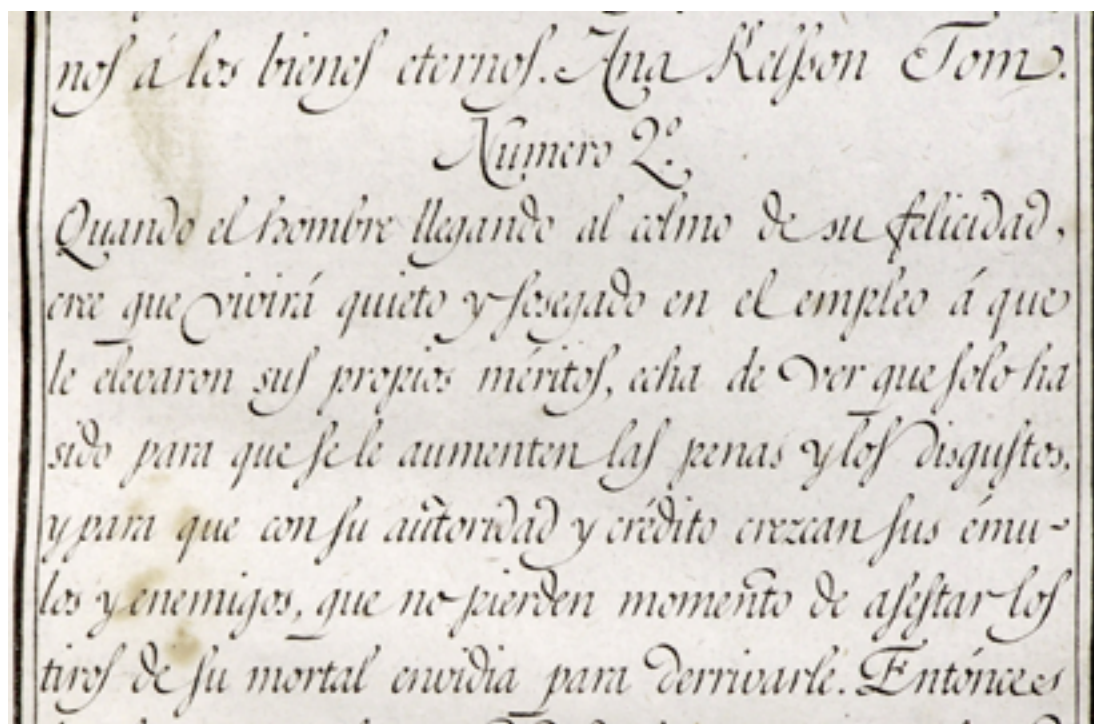 nos á los bienes eternos. Ana Kelsson Tom.
Numero 2.º
Quando el hombre llegando al colmo de su felicidad,
cree que vivirá quieto y sosegado en el empleo á que
le elevaron sus propios méritos, echa de ver que solo ha
sido para que se le aumenten las penas y los disgustos,
y para que con su autoridad y crédito crezcan sus ému-
los y enemigos, que no pierden momento de asestar los
tiros de su mortal envidia para derrivarle. Entónces